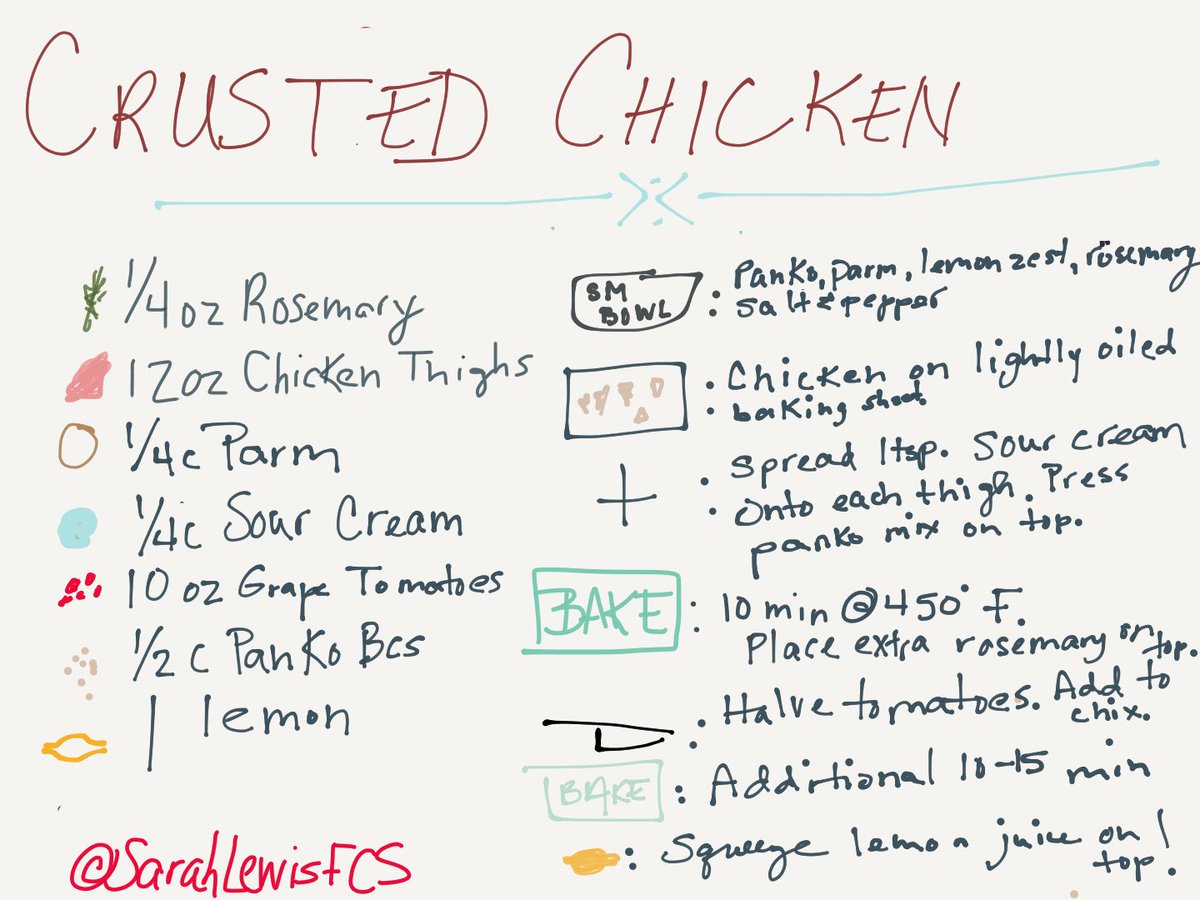 CRUSTED CHICKEN
1/4 oz Rosemary
12oz Chicken Thighs
1/4c Parm
1/4c Sour Cream
10 oz Grape Tomatoes
1/2 c Panko Bcs
1 lemon
@SarahLewisFCS
SM
BOWL
: Panko, parm, lemon zest, rosemary
salt & pepper
: Chicken on lightly oiled
baking sheet
: Spread 1tsp. Sour cream
onto each thigh. Press
panko mix on top.
BAKE : 10 min @ 450° F.
Place extra rosemary on
top.
: Halve tomatoes. Add to
chix.
BAKE : Additional 10-15 min
: Squeeze lemon juice on
top!